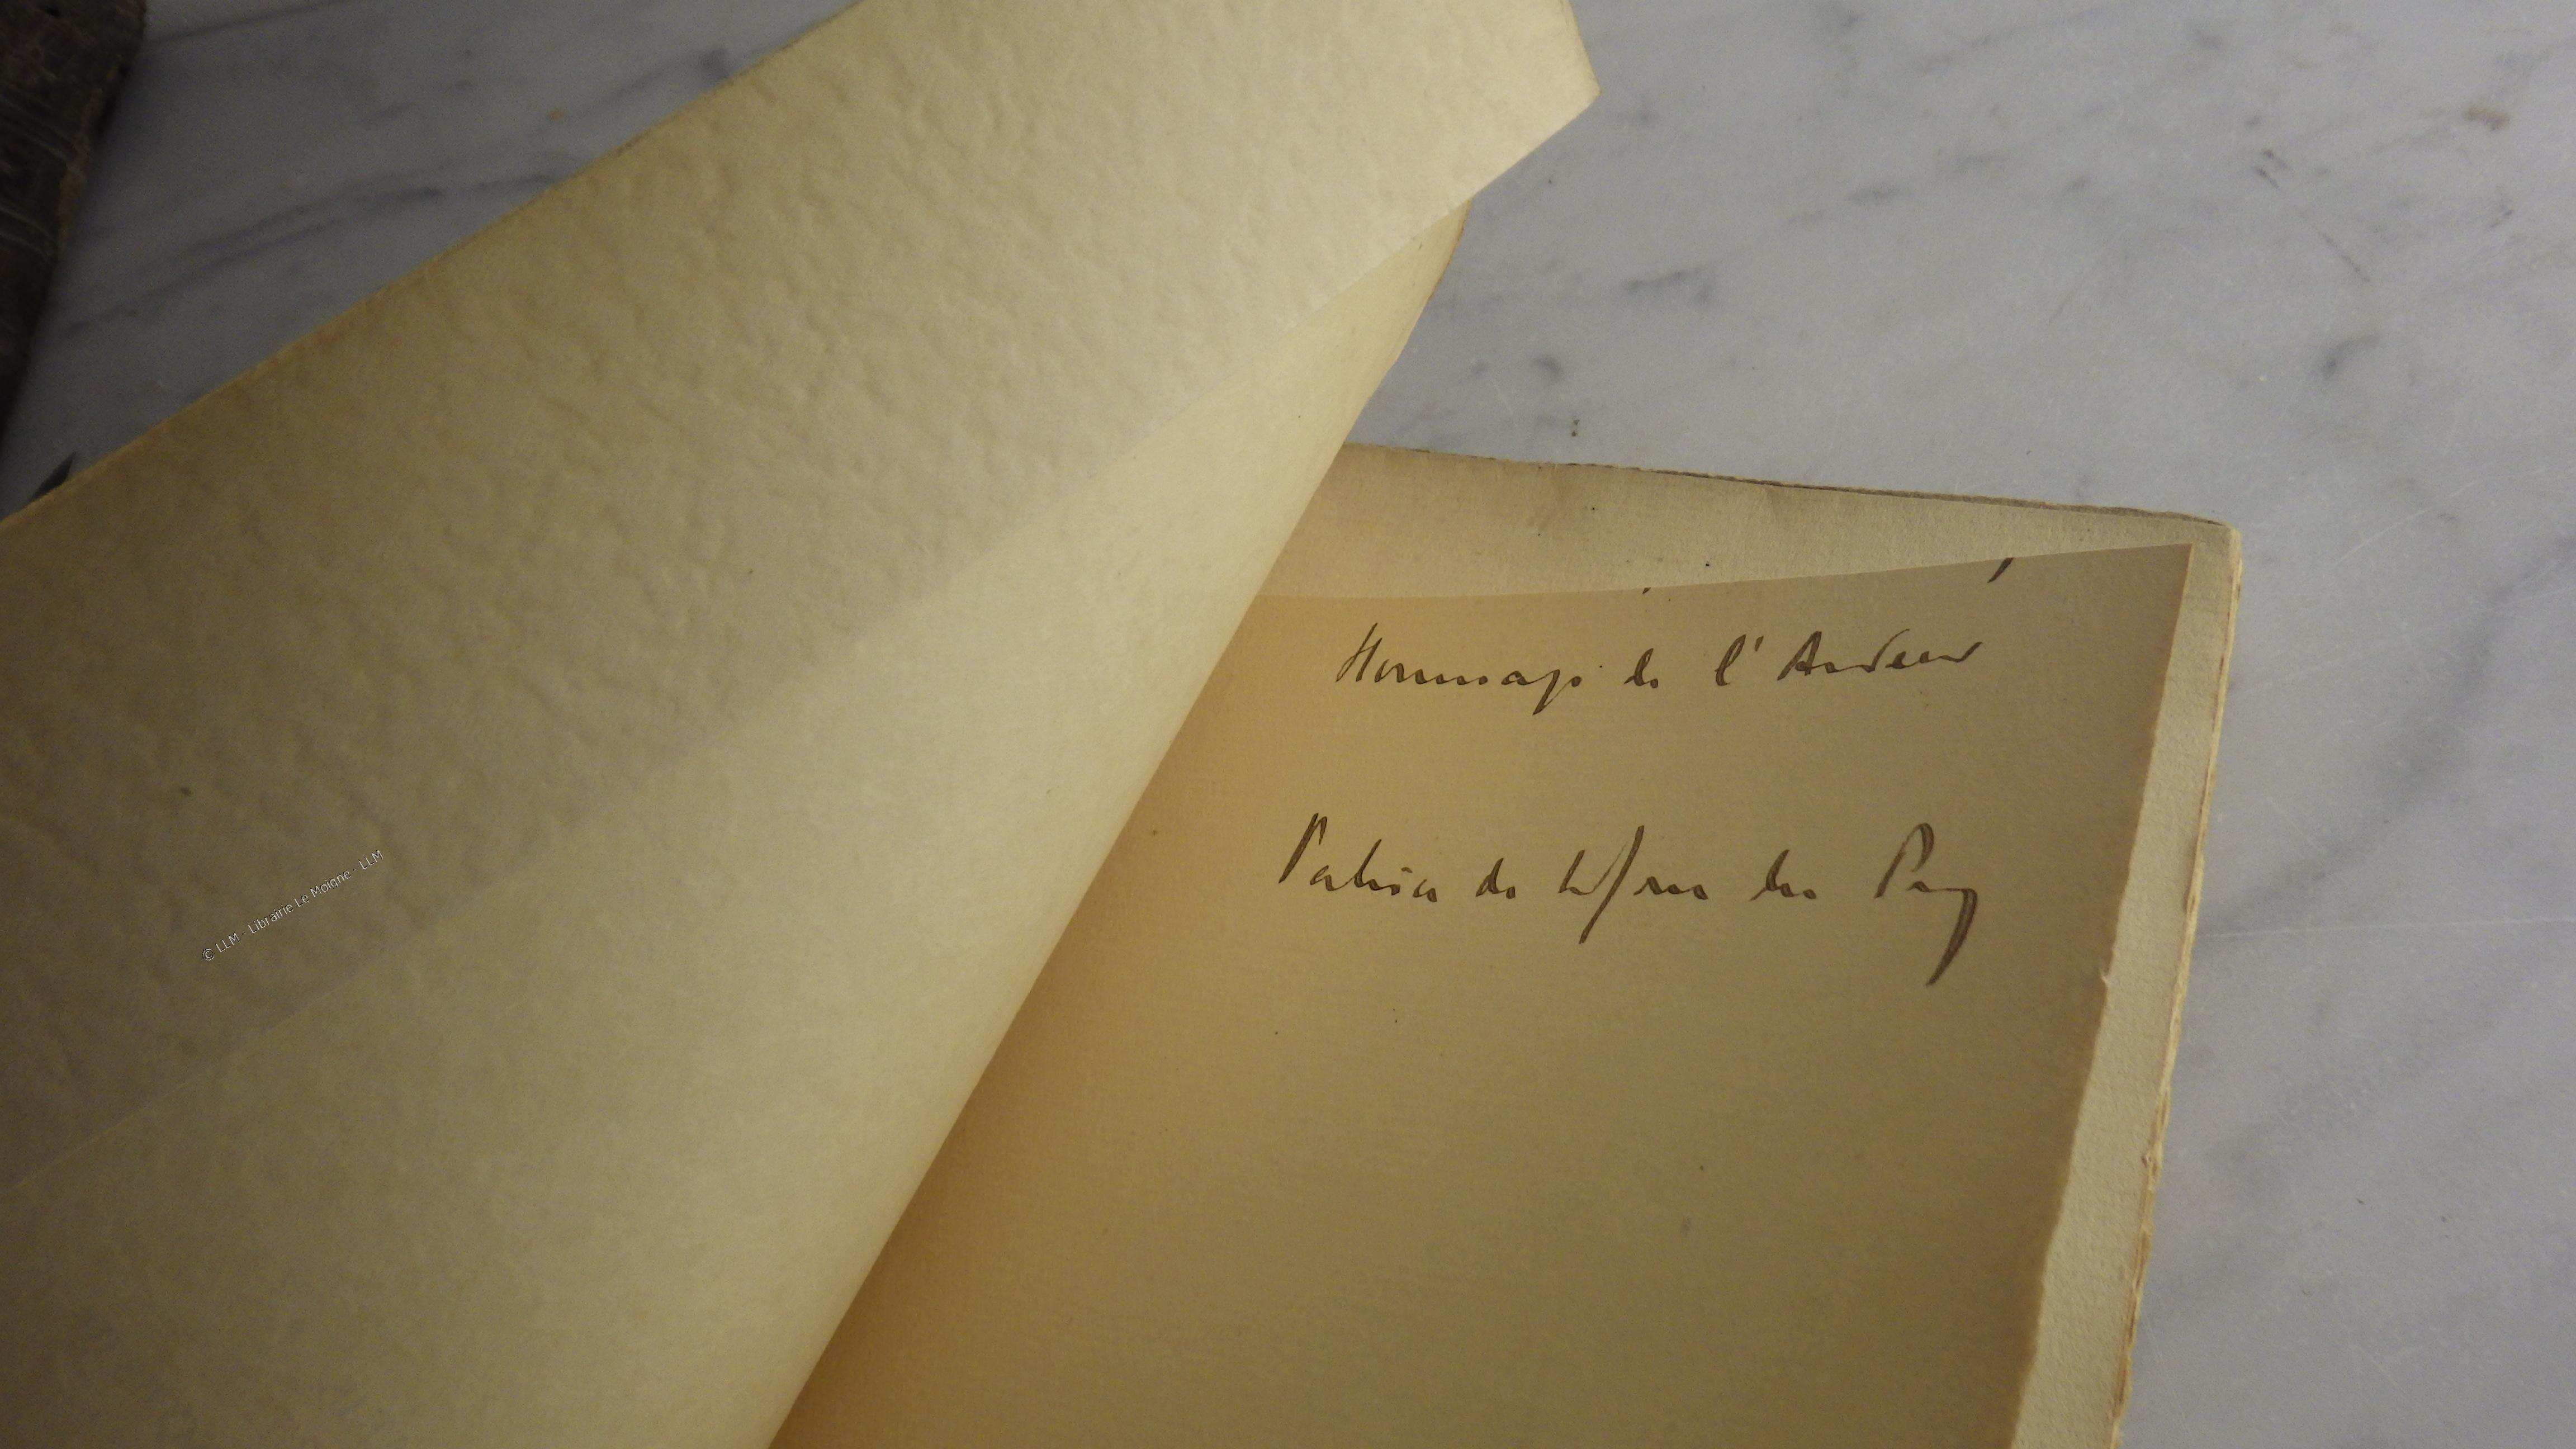 Hommage de l'Auteur
Patrice de la Tour du Pin
© LLM - Librairie Le Moigne - LLM